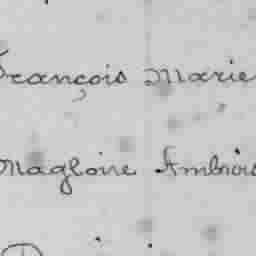 François Marie
Magloire Ambrois